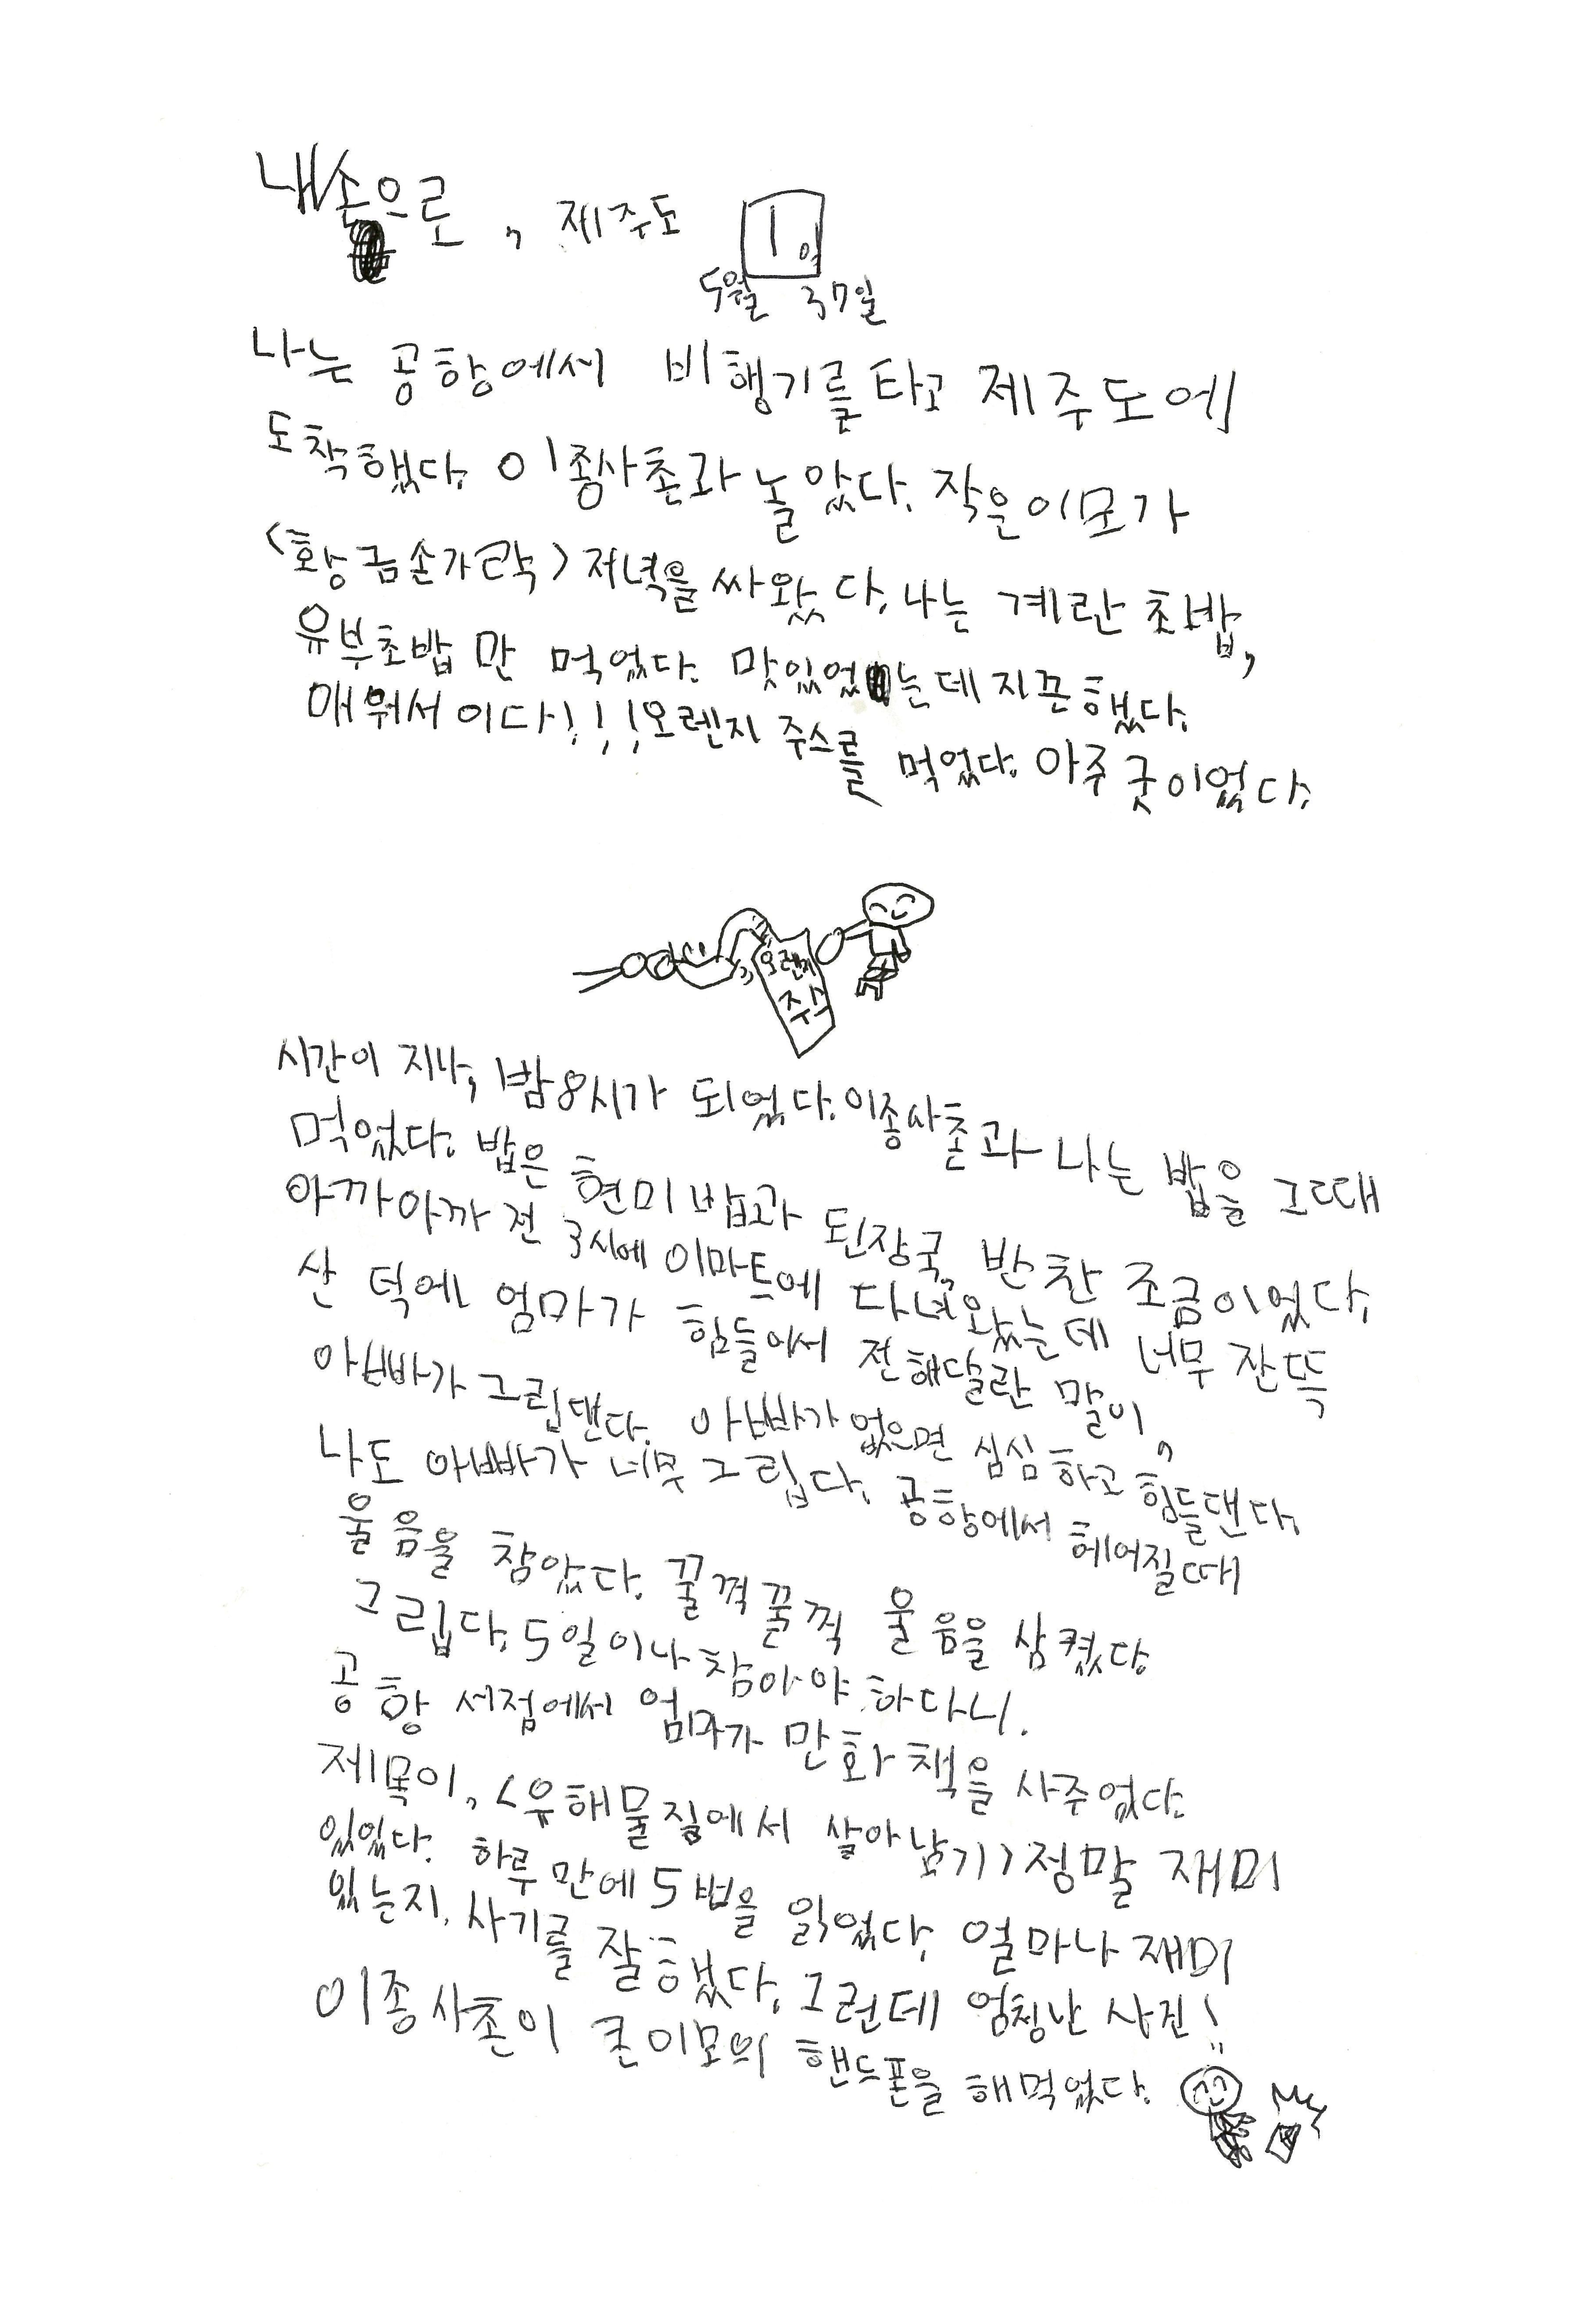 내손으로, 제주도 1일
5월 37일
나는 공항에서 비행기를 타고 제주도에
도착했다. 이종사촌과 놀았다. 작은이모가
<황금손가락> 저녁을 싸왔다. 나는 계란 초밥,
유부초밥 만 먹었다. 맛있었는데 지끈했다.
매워서이다!!! 오렌지 주스를 먹었다. 아주 굿이었다.
오렌지
주스
시간이 지나, 밤8시가 되었다. 이종사촌과 나는 밥을 그때
먹었다. 밥은 현미밥과 된장국, 반찬 조금이었다.
아까아까 전 3시에 이마트에 다녀왔는데 너무 잔뜩
산 덕에 엄마가 힘들어서 전해달란 말이,
아빠가 그립댄다. 아빠가 없으면 심심하고 힘들댄다.
나도 아빠가 너무 그립다. 공항에서 헤어질때
울음을 참았다. 꿀꺽꿀꺽 울음을 삼켰다
그립다. 5일이나 참아야 하다니.
공항 서점에서 엄마가 만화책을 사주었다.
제목이, <유해물질에서 살아남기> 정말 재미
있었다. 하루만에 5번을 읽었다. 얼마나 재미
있는지. 사기를 잘했다. 그런데 엄청난 사건!
이종사촌이 큰이모의 핸드폰을 해먹었다.